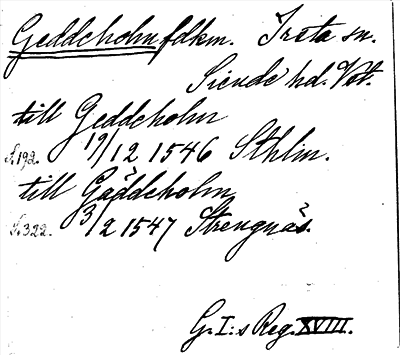 Geddeholm fdkm. Irsta sn.
Siende hd. Vstm.
till Geddeholm
S.192. 19/12 1546 Sthlm.
till Gäddeholm
S.322. 3/2 1547 Strengnäs.
G. I:s Reg. XVIII.